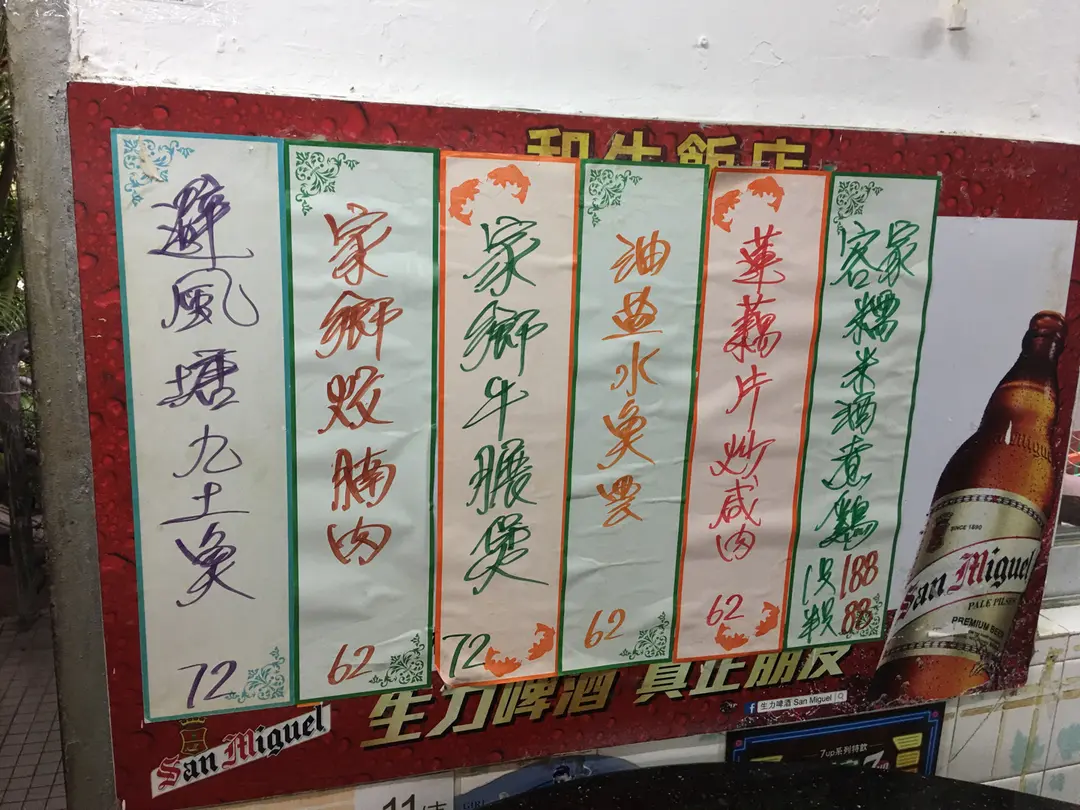 和生飯店
避風塘九土魚
72
家鄉炆腩肉
62
家鄉牛腒煲
72
油盐水魚
62
蓮藕片炒咸肉
62
客家糯米酒煮鷄
1只188
半只88
SINCE 1890
San Miguel
PALE PILSEN
PREMIUM BEER
生力啤酒 真正朋友
生力啤酒 San Miguel
San Miguel
7up系列特飲
11